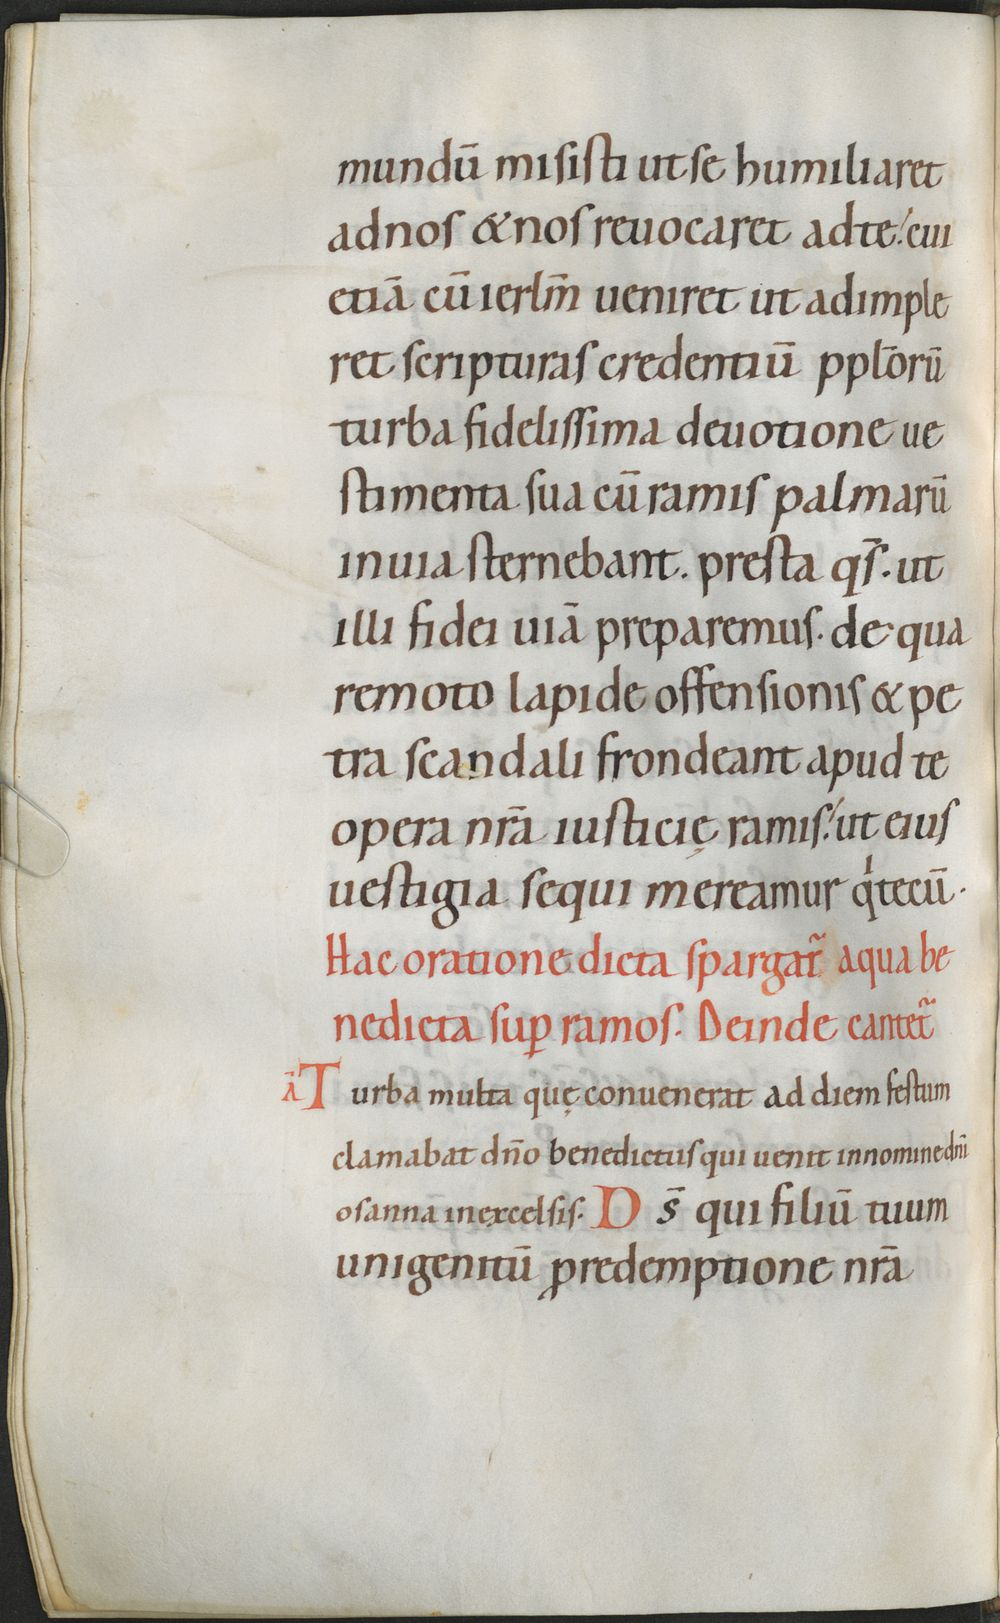 mundū misisti ut se humiliaret
ad nos & nos reuocaret ad te. cui
etiā cū ierlm̄ ueniret ut adimple
ret scripturas credentiū ppl̄orū
turba fidelissima deuotione ue
stimenta sua cū ramis palmarū
in uia sternebant. presta qs̄. ut
illi fidei uiā preparemus. de qua
remoto lapide offensionis & pe
tra scandali frondeant apud te
opera nr̄a iusticię ramis. ut eius
uestigia sequi mereamur qi tecū.
Hac oratione dicta spargat̃ aqua be
nedicta sup̱ ramos. Deinde cantet̃
Ā Turba multa quę conuenerat ad diem festum
clamabat dn̄o benedictus qui uenit in nomine dn̄i
osanna in excelsis. Ds̄ qui filiū tuum
unigenitū ꝓ redemptione nr̄a